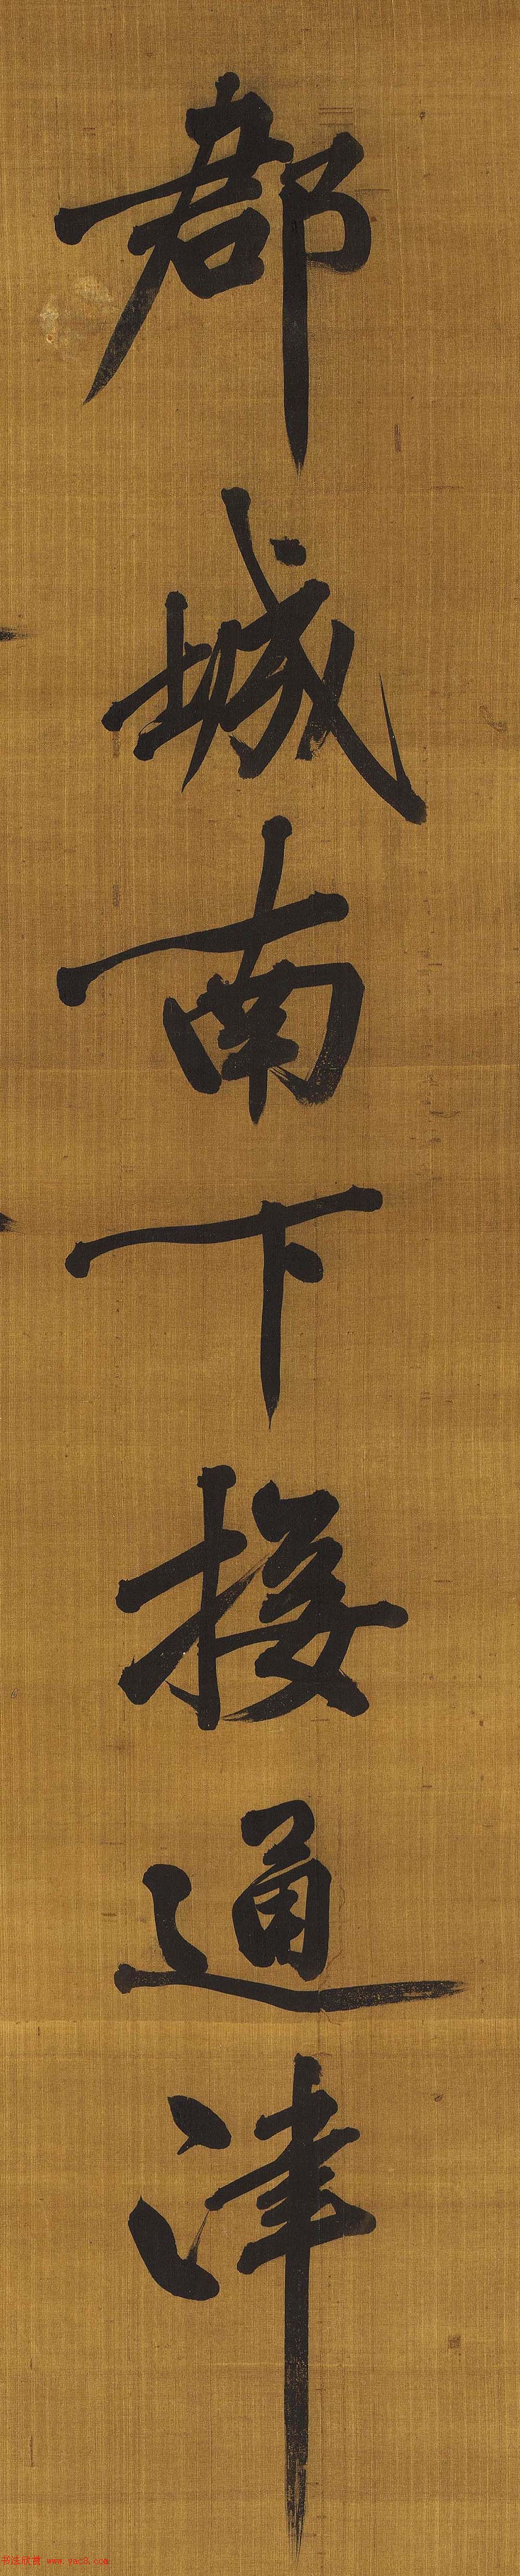 郡城南下接通津
书法欣赏 www.yac8.com